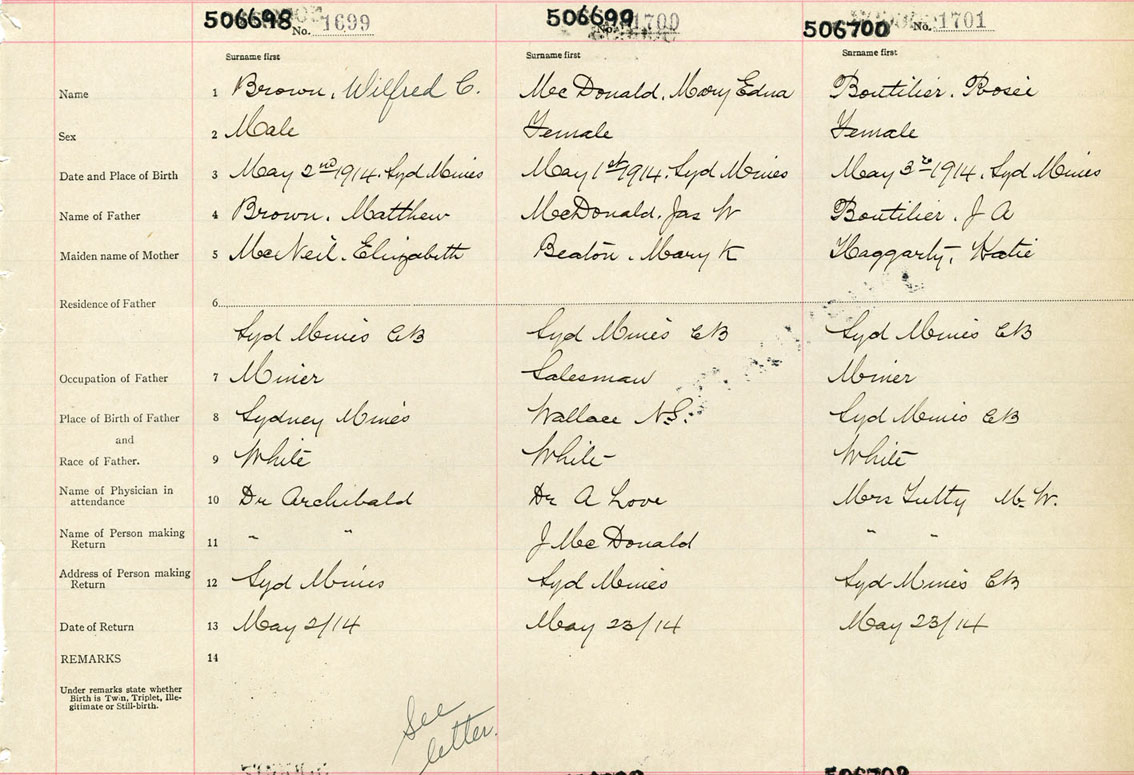 506698 No. 1699 506699 No. 1700 506700 No. 1701
Surname first Surname first Surname first
Name 1 Brown, Wilfred C. McDonald, Mary Edna Boutilier, Rosie
Sex 2 Male Female Female
Date and Place of Birth 3 May 2nd 1914. Syd Mines May 1st 1914. Syd Mines May 3rd 1914. Syd Mines
Name of Father 4 Brown, Matthew McDonald, Jas W Boutilier, J A
Maiden name of Mother 5 McNeil, Elizabeth Beaton, Mary K Haggarty, Katie
Residence of Father 6
Syd Mines CB Syd Mines CB Syd Mines CB
Occupation of Father 7 Miner Salesman Miner
Place of Birth of Father 8 Sydney Mines Wallace N.S. Syd Mines CB
and
Race of Father. 9 White White White
Name of Physician in
attendance 10 Dr Archibald Dr A Love Mrs Tutty M. W.
Name of Person making
Return 11 " " J McDonald " "
Address of Person making
Return 12 Syd Mines Syd Mines Syd Mines CB
Date of Return 13 May 2/14 May 23/14 May 23/14
REMARKS 14
Under remarks state whether
Birth is Twin, Triplet, Ille-
gitimate or Still-birth.
See
letter.